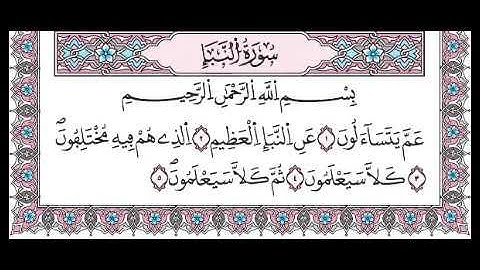 سُورَةُ النَّبَإِ
بِسْمِ اللَّهِ الرَّحْمَٰنِ الرَّحِيمِ
عَمَّ يَتَسَاءَلُونَ ۝١ عَنِ النَّبَإِ الْعَظِيمِ ۝٢ الَّذِي هُمْ فِيهِ مُخْتَلِفُونَ
۝٣ كَلَّا سَيَعْلَمُونَ ۝٤ ثُمَّ كَلَّا سَيَعْلَمُونَ ۝٥